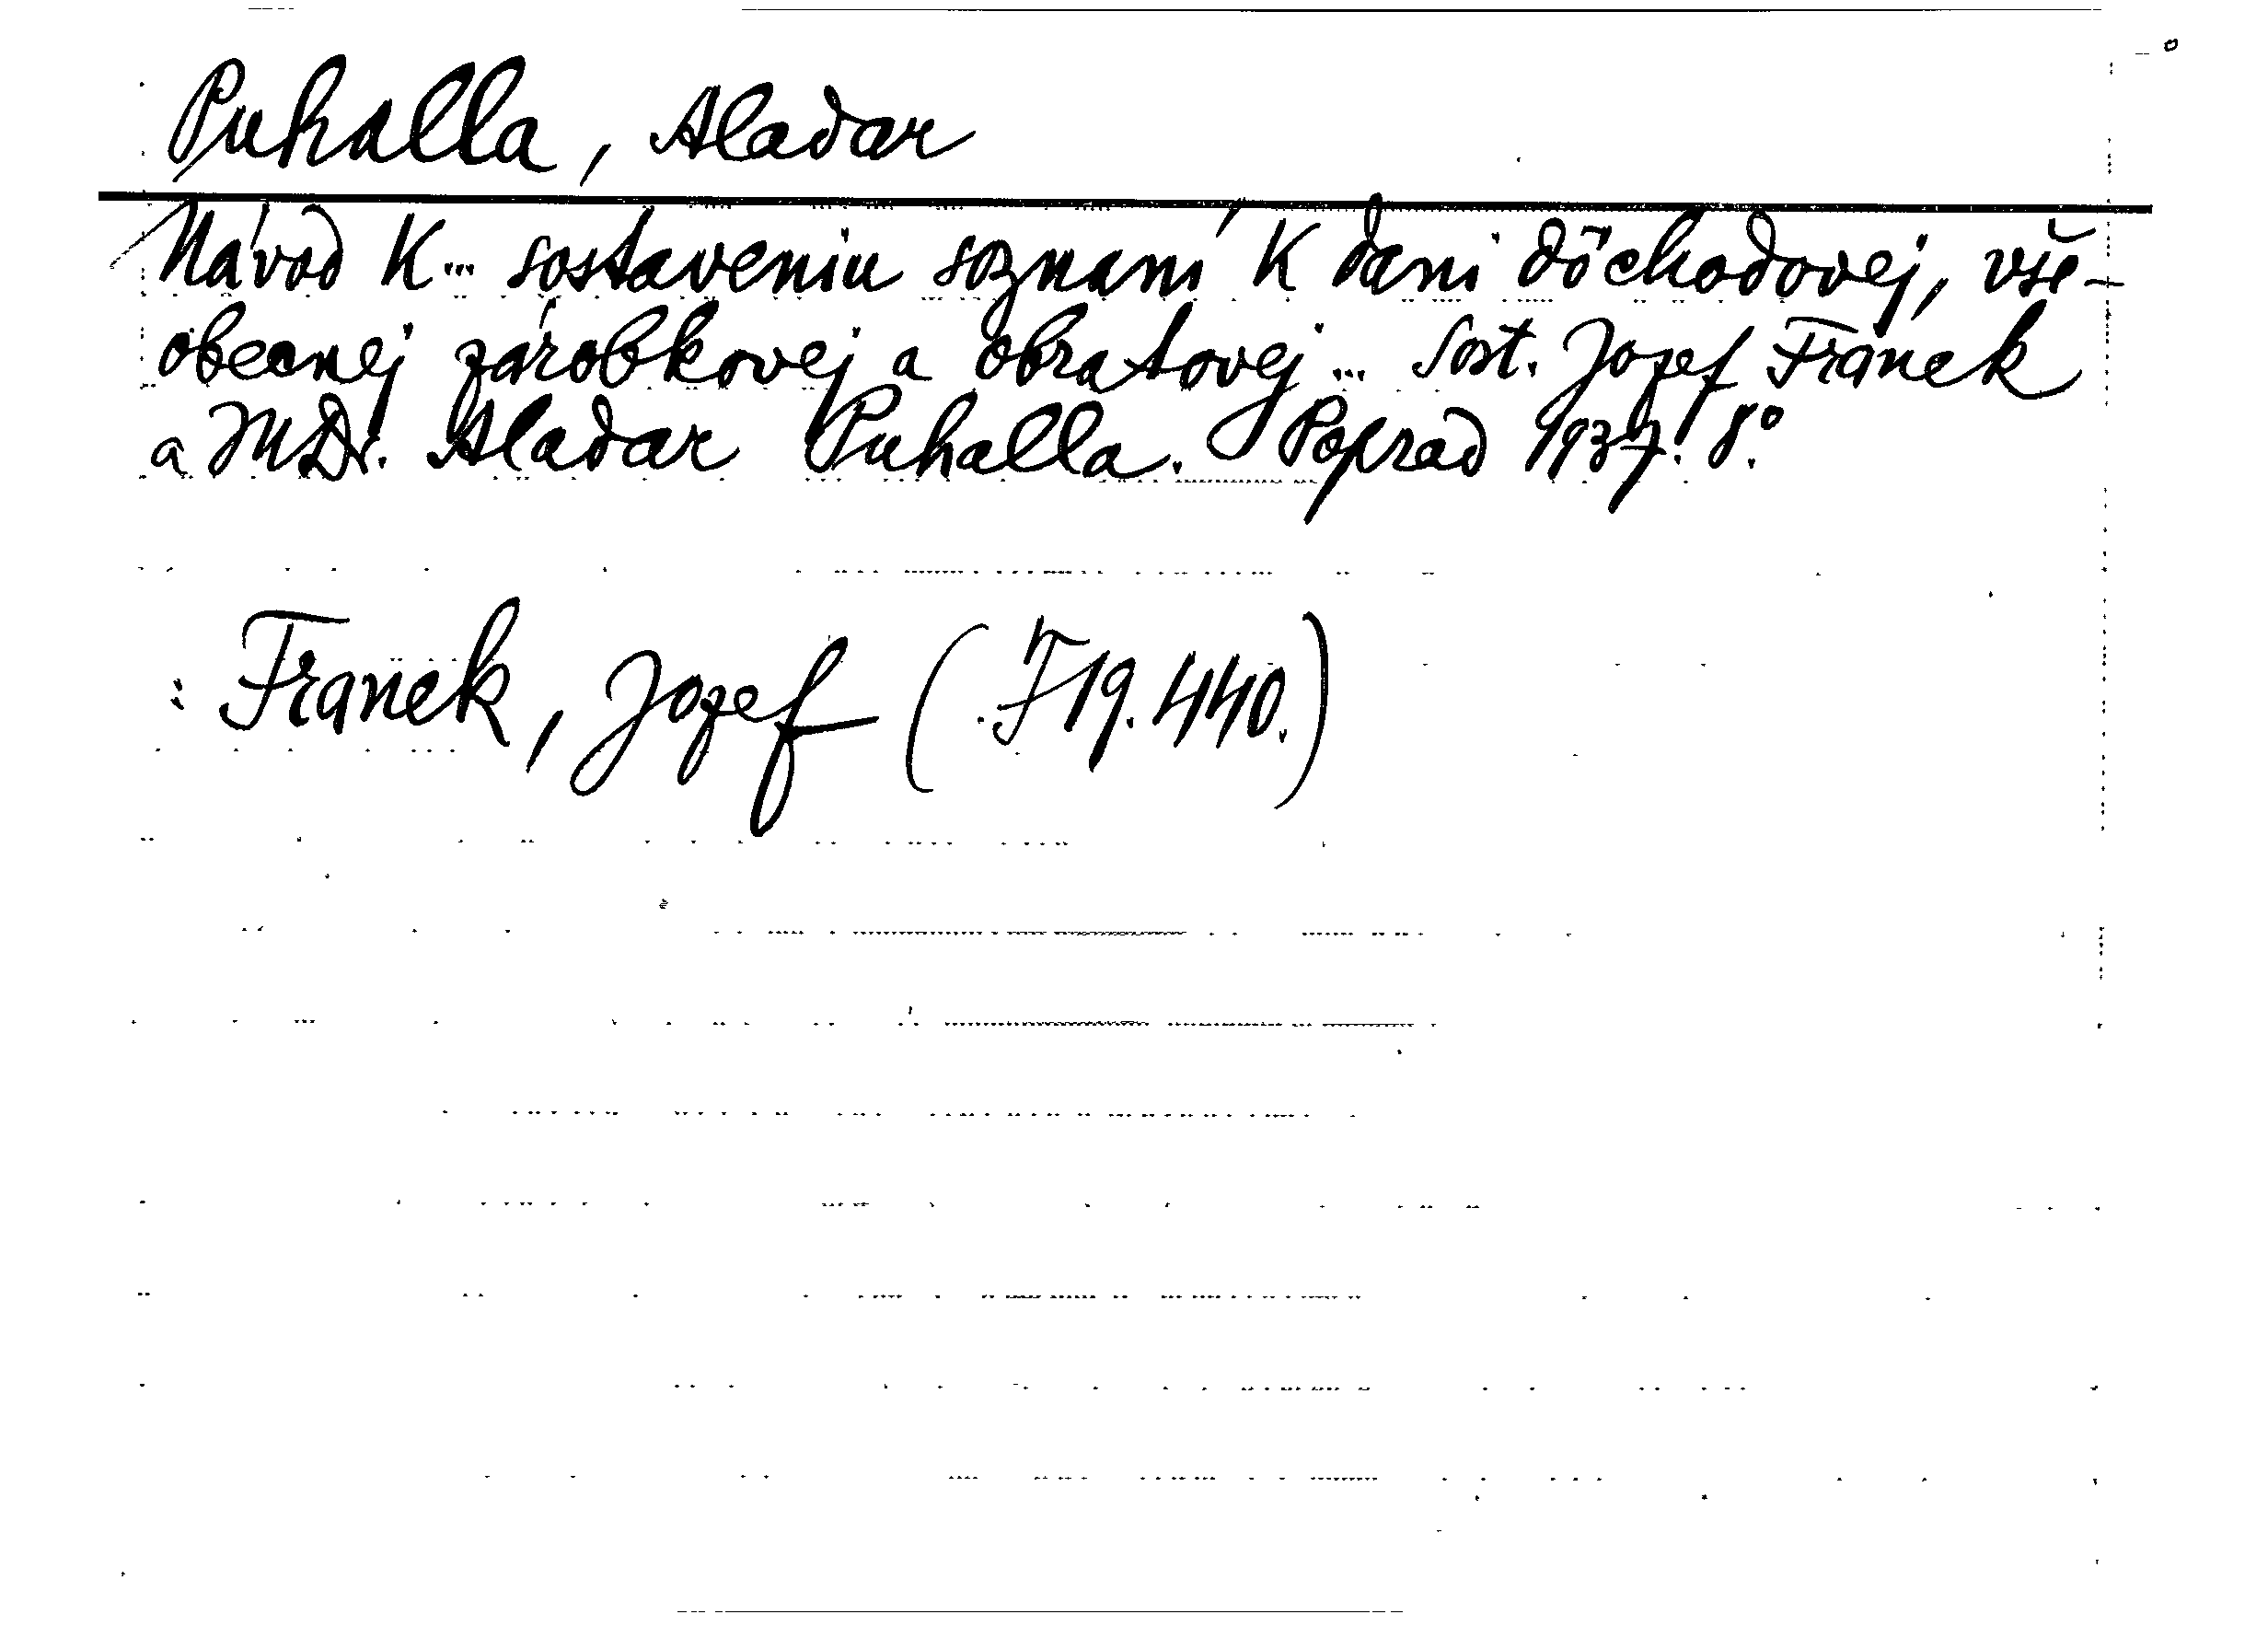 Puhalla, Aladar
Návod k... sostaveniu soznaní k dani dôchodovej, vše-
obecnej zárobkovej a obratovej... Sost. Jozef Franek
a MDr. Aladar Puhalla. Poprad 1937. 8°.
: Franek, Jozef (F 19.440.)